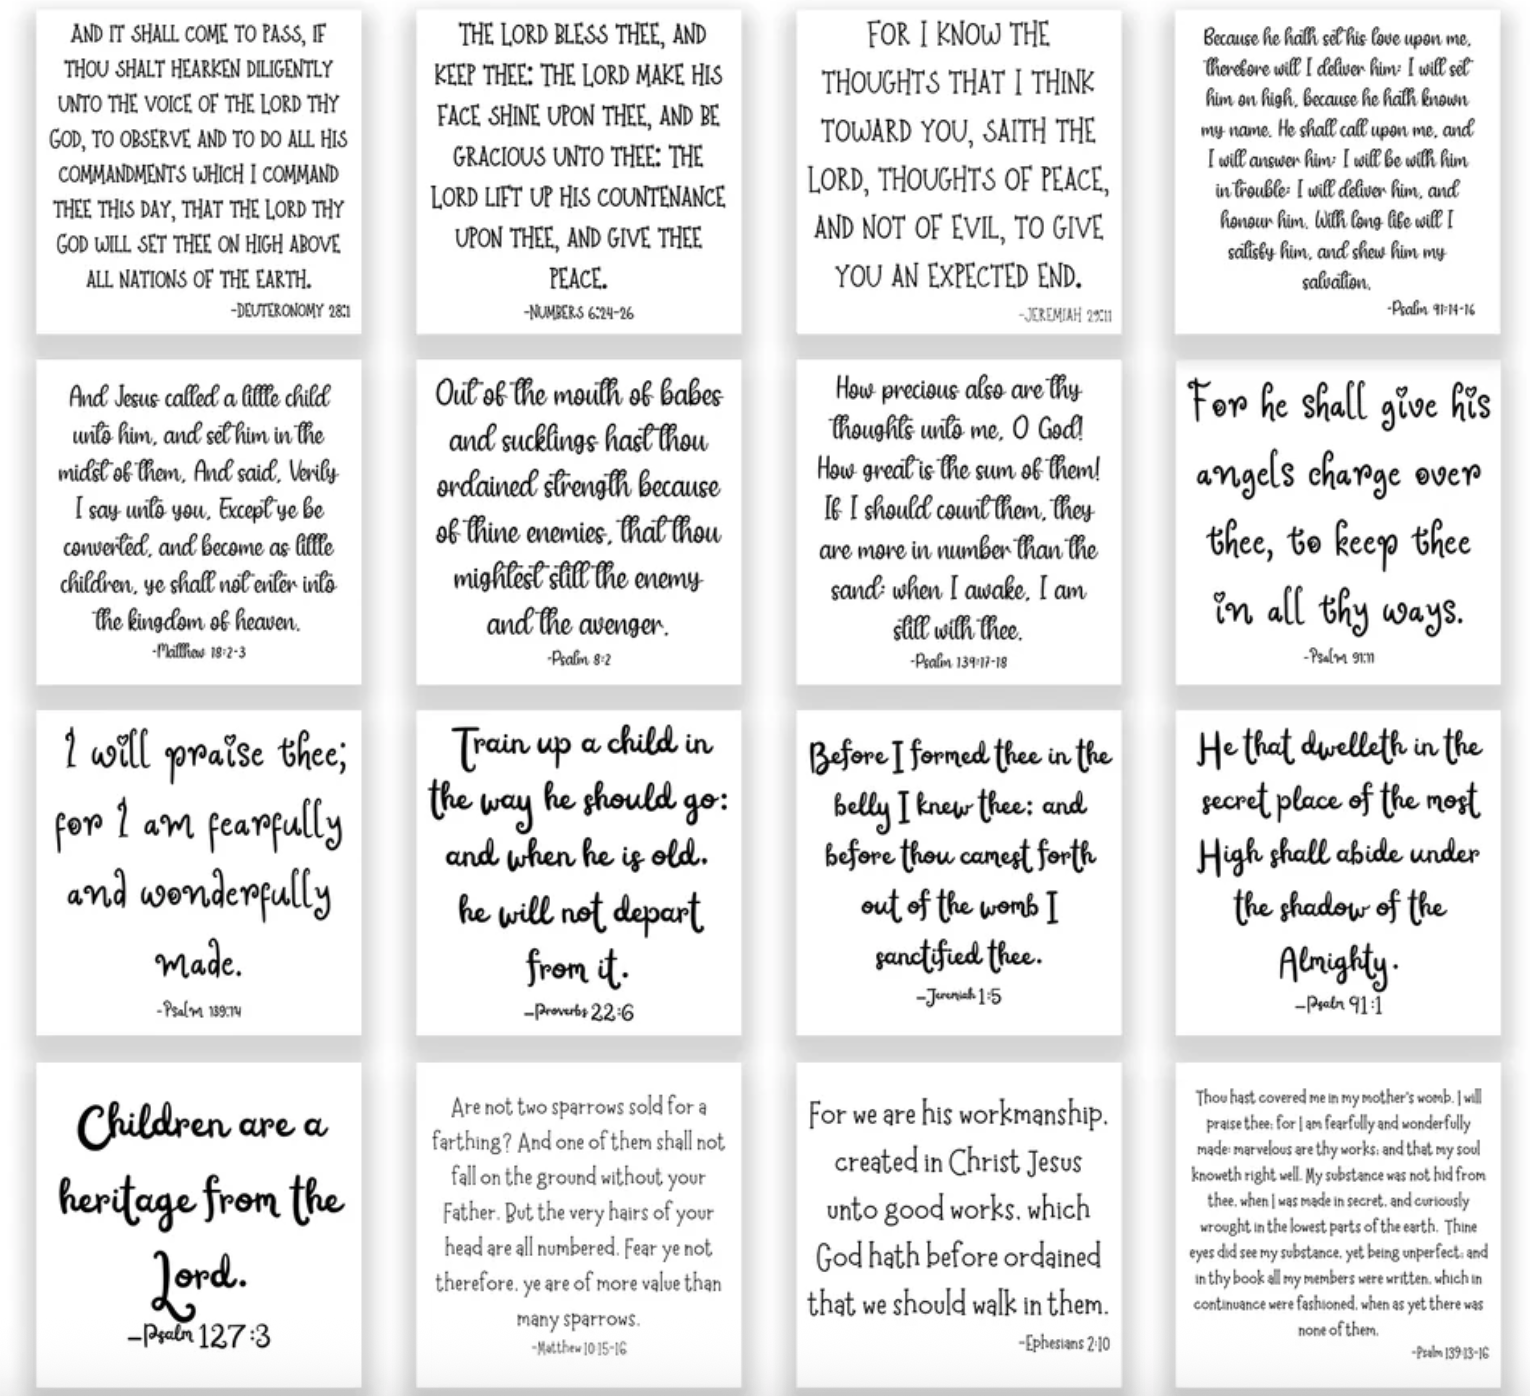 AND IT SHALL COME TO PASS, IF
THOU SHALT HEARKEN DILIGENTLY
UNTO THE VOICE OF THE LORD THY
GOD, TO OBSERVE AND TO DO ALL HIS
COMMANDMENTS WHICH I COMMAND
THEE THIS DAY, THAT THE LORD THY
GOD WILL SET THEE ON HIGH ABOVE
ALL NATIONS OF THE EARTH.
-DEUTERONOMY 28:1
THE LORD BLESS THEE, AND
KEEP THEE: THE LORD MAKE HIS
FACE SHINE UPON THEE, AND BE
GRACIOUS UNTO THEE: THE
LORD LIFT UP HIS COUNTENANCE
UPON THEE, AND GIVE THEE
PEACE.
-NUMBERS 6:24-26
FOR I KNOW THE
THOUGHTS THAT I THINK
TOWARD YOU, SAITH THE
LORD, THOUGHTS OF PEACE,
AND NOT OF EVIL, TO GIVE
YOU AN EXPECTED END.
-JEREMIAH 29:11
Because he hath set his love upon me,
therefore will I deliver him: I will set
him on high, because he hath known
my name. He shall call upon me, and
I will answer him: I will be with him
in trouble: I will deliver him, and
honour him. With long life will I
satisfy him, and shew him my
salvation.
-Psalm 91:14-16
And Jesus called a little child
unto him, and set him in the
midst of them, And said, Verily
I say unto you, Except ye be
converted, and become as little
children, ye shall not enter into
the kingdom of heaven.
-Matthew 18:2-3
Out of the mouth of babes
and sucklings hast thou
ordained strength because
of thine enemies, that thou
mightest still the enemy
and the avenger.
-Psalm 8:2
How precious also are thy
thoughts unto me, O God!
How great is the sum of them!
If I should count them, they
are more in number than the
sand: when I awake, I am
still with thee.
-Psalm 139:17-18
For he shall give his
angels charge over
thee, to keep thee
in all thy ways.
-Psalm 91:11
I will praise thee;
for I am fearfully
and wonderfully
made.
-Psalm 139:14
Train up a child in
the way he should go:
and when he is old,
he will not depart
from it.
-Proverbs 22:6
Before I formed thee in the
belly I knew thee; and
before thou camest forth
out of the womb I
sanctified thee.
-Jeremiah 1:5
He that dwelleth in the
secret place of the most
High shall abide under
the shadow of the
Almighty.
-Psalm 91:1
Children are a
heritage from the
Lord.
-Psalm 127:3
Are not two sparrows sold for a
farthing? And one of them shall not
fall on the ground without your
Father. But the very hairs of your
head are all numbered. Fear ye not
therefore, ye are of more value than
many sparrows.
-Matthew 10:15-16
For we are his workmanship,
created in Christ Jesus
unto good works, which
God hath before ordained
that we should walk in them.
-Ephesians 2:10
Thou hast covered me in my mother's womb. I will
praise thee; for I am fearfully and wonderfully
made: marvelous are thy works; and that my soul
knoweth right well. My substance was not hid from
thee, when I was made in secret, and curiously
wrought in the lowest parts of the earth. Thine
eyes did see my substance, yet being unperfect; and
in thy book all my members were written, which in
continuance were fashioned, when as yet there was
none of them.
-Psalm 139:13-16